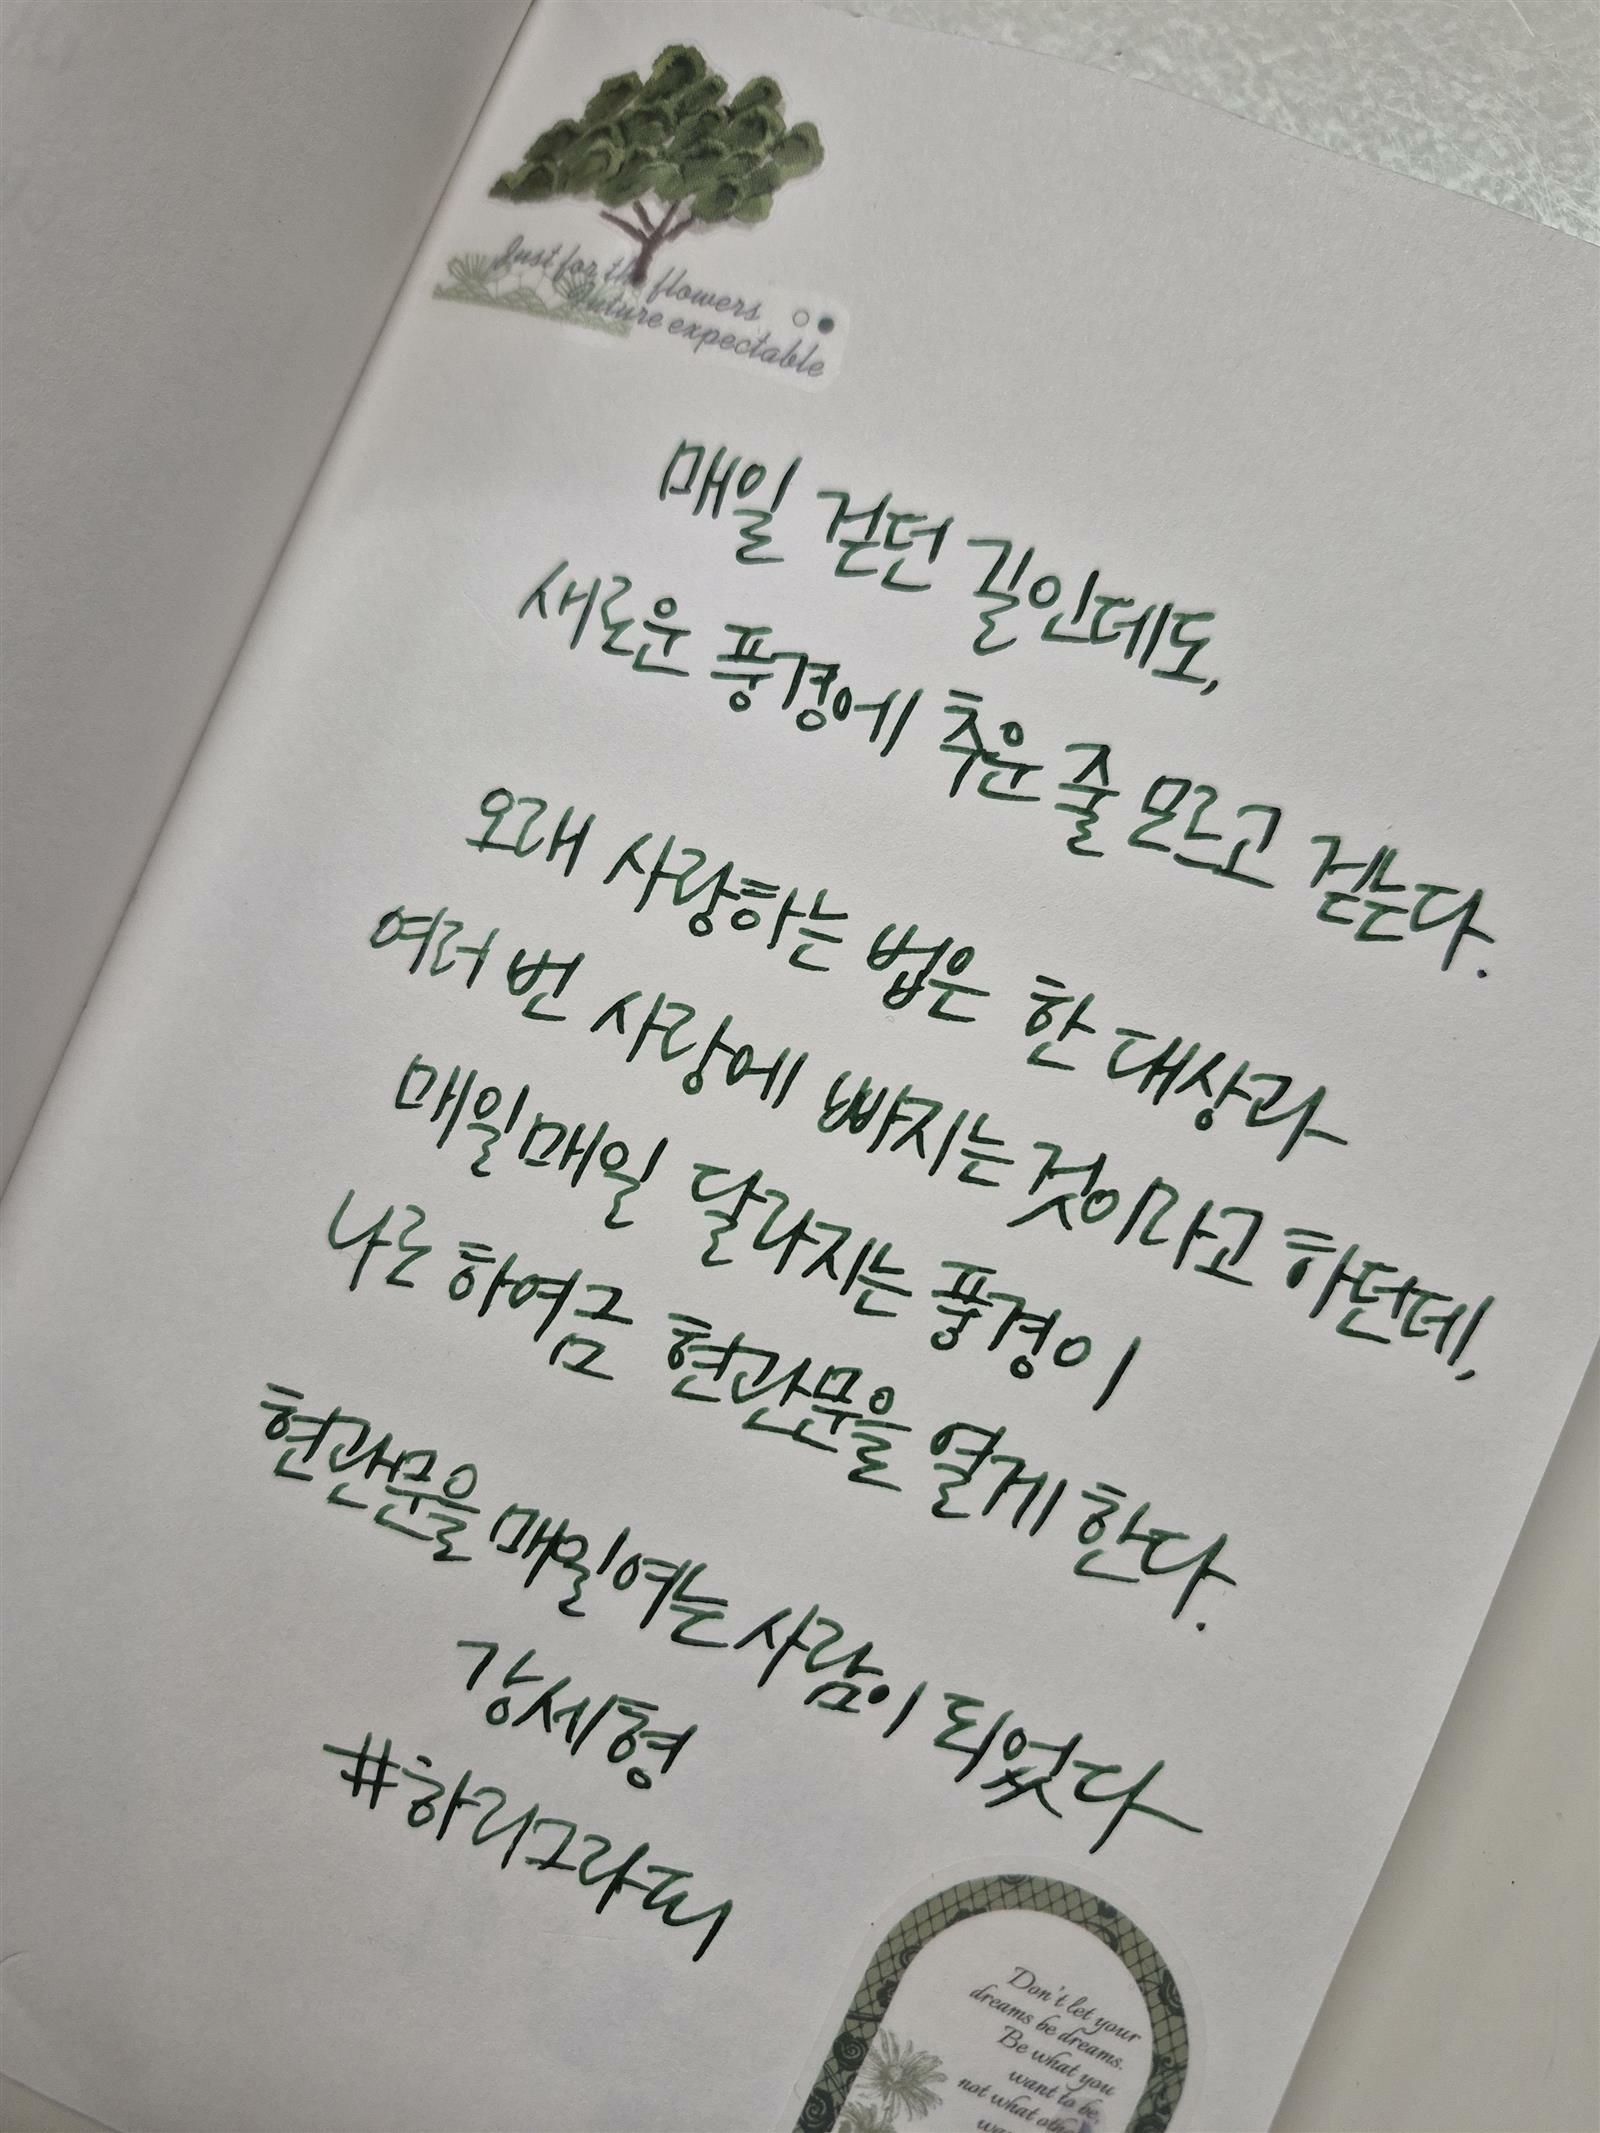 Just for the flowers
future expectable
매일 걷던 길인데도,
새로운 풍경에 추운 줄 모르고 걷는다.
오래 사랑하는 법은 한 대상과
여러 번 사랑에 빠지는 것이라고 하던데,
매일매일 달라지는 풍경이
나로 하여금 현관문을 열게 한다.
현관문을 매일 여는 사람이 되었다
강세형
#하리그라피
Don't let your
dreams be dreams.
Be what you
want to be,
not what